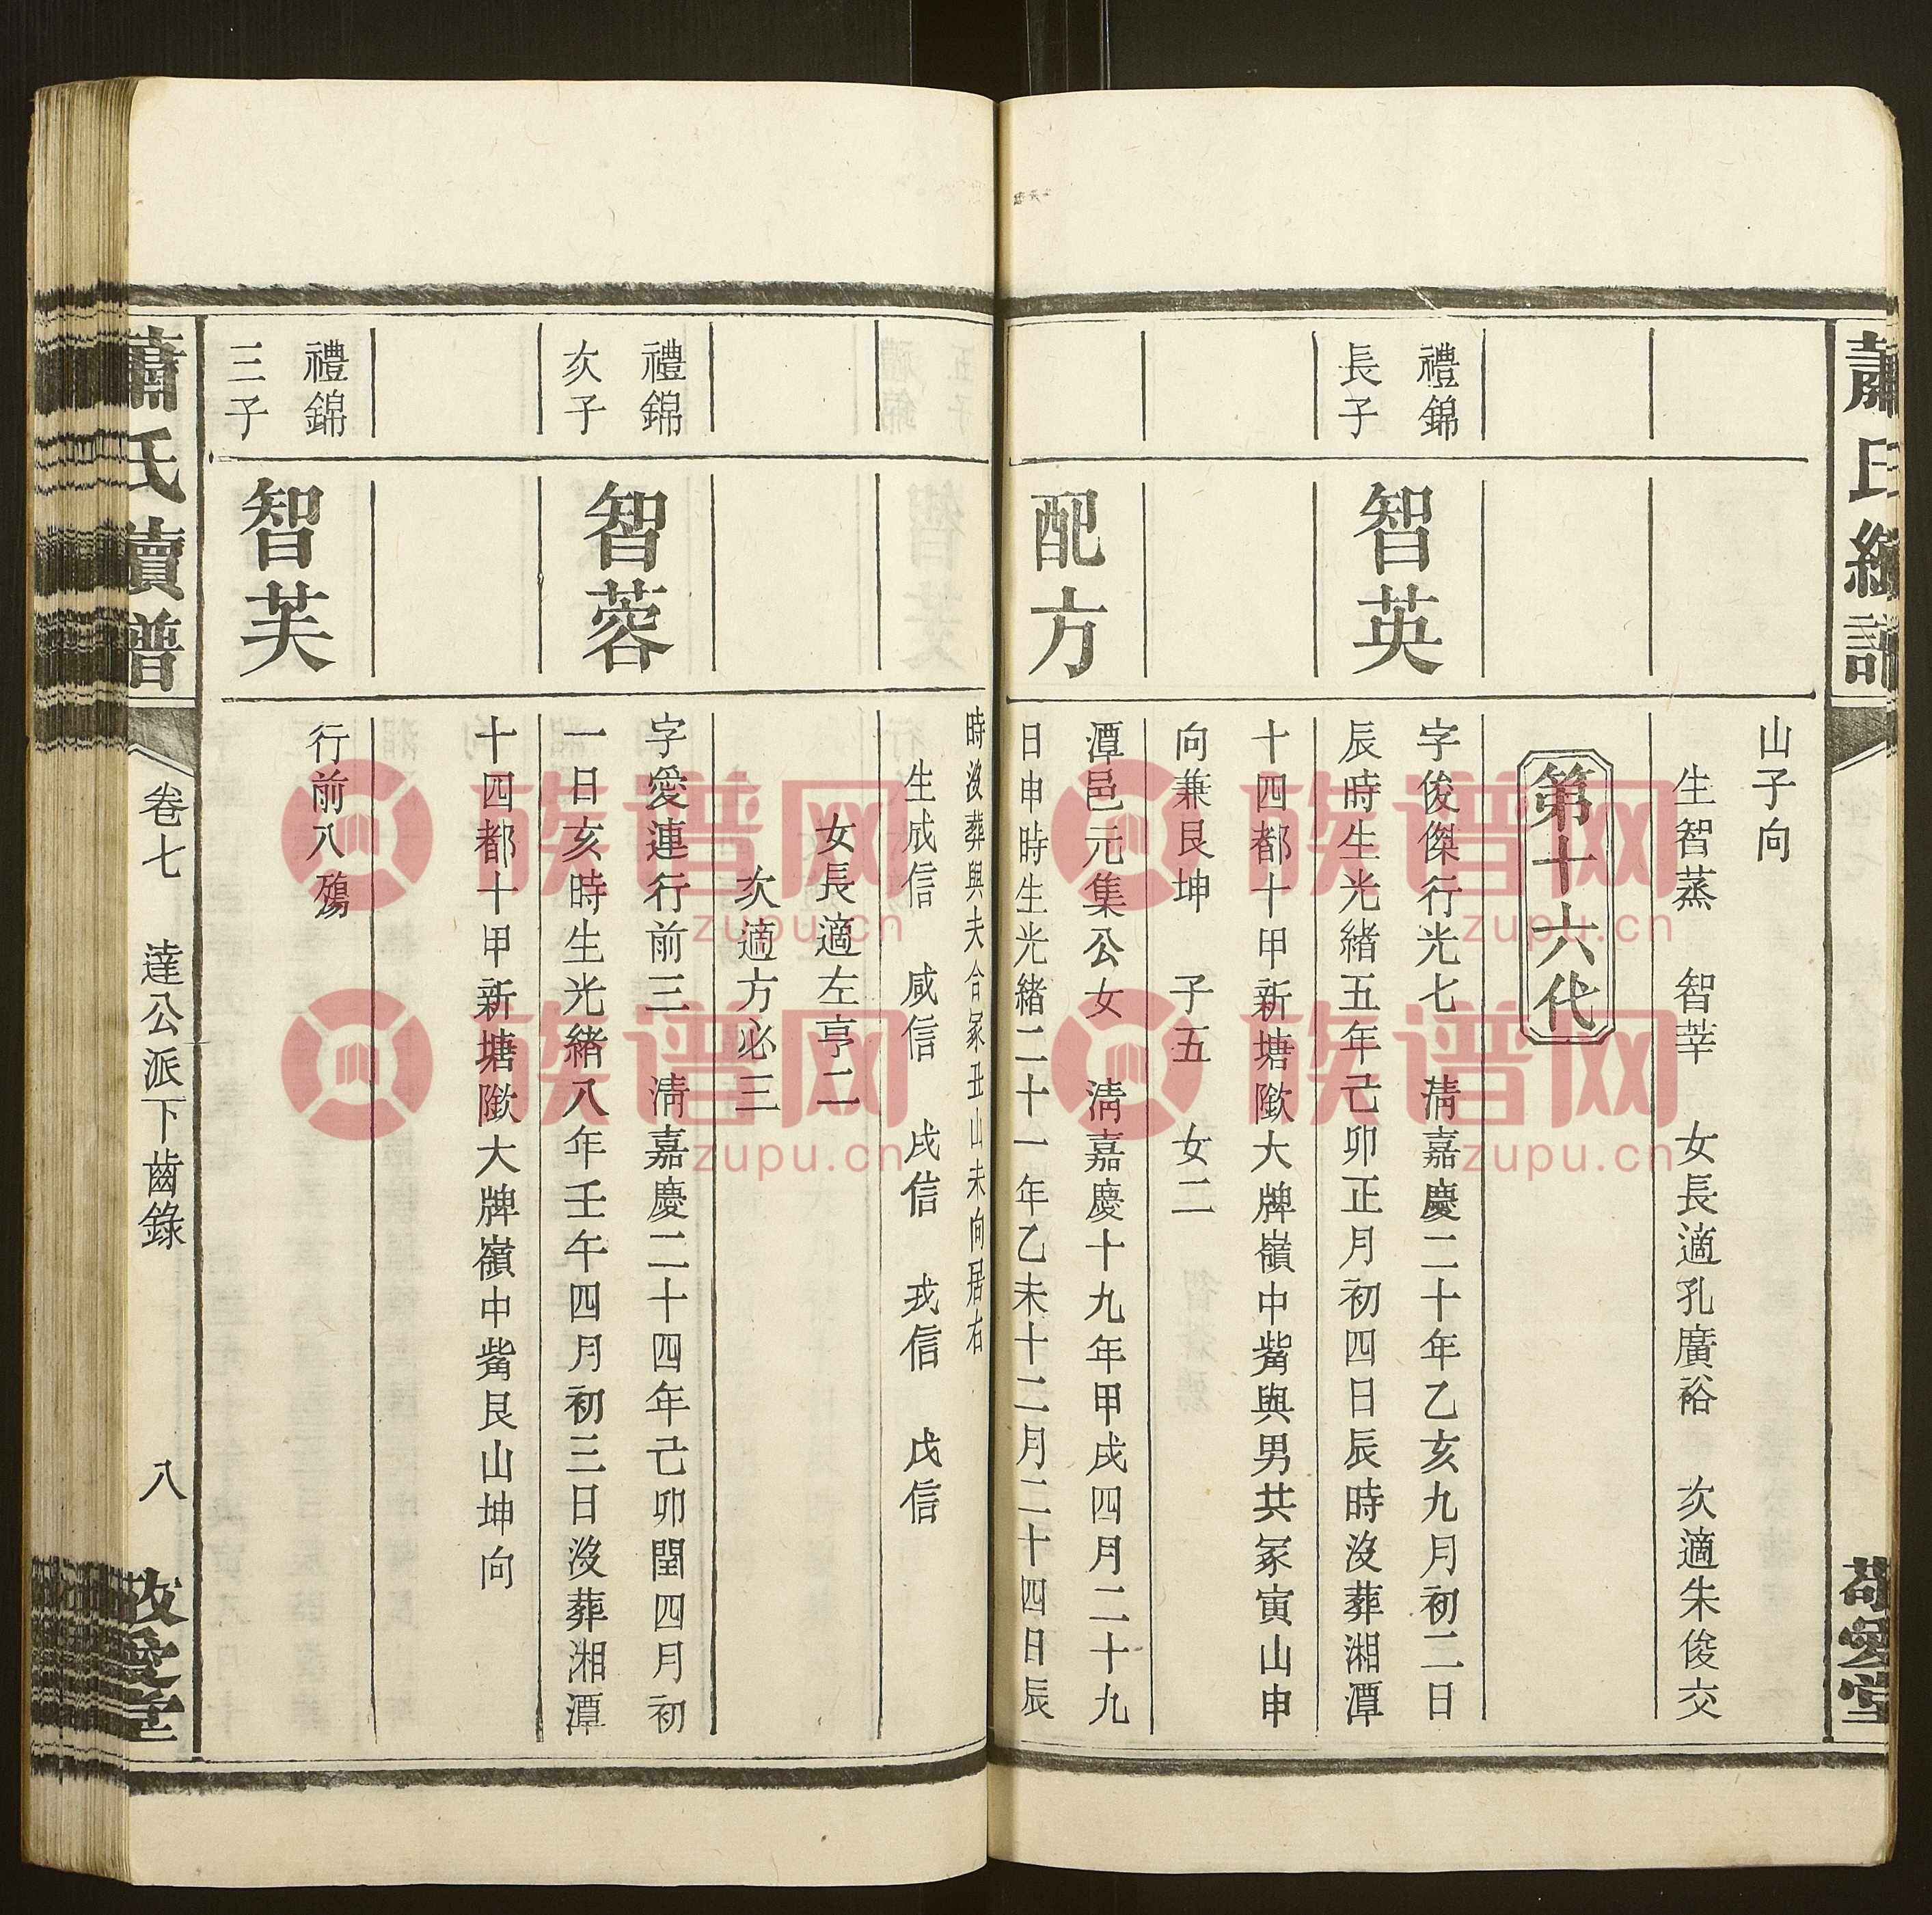 蕭氏續譜
敬愛堂
山子向
生智蒸　智莘　女長適孔廣裕　次適朱俊交
第十六代
禮錦
長子
智英
字俊傑行光七　清嘉慶二十年乙亥九月初二日
辰時生光緒五年己卯正月初四日辰時沒葬湘潭
十四都十甲新塘隞大牌嶺中嘴與男共冢寅山申
向兼艮坤　子五　女二
配方
潭邑元集公女　清嘉慶十九年甲戌四月二十九
日申時生光緒二十一年乙未十二月二十四日辰
時沒葬與夫合冢丑山未向居右
生成信　咸信　戌信　戎信　戊信
女長適左亨二
次適方必三
禮錦
次子
智蓉
字愛連行前三　清嘉慶二十四年己卯閏四月初
一日亥時生光緒八年壬午四月初三日沒葬湘潭
十四都十甲新塘隞大牌嶺中嘴艮山坤向
禮錦
三子
智芙
行前八殤
蕭氏續譜
卷七　達公派下齒錄　八
敬愛堂
族谱网
zupu.cn
族谱网
zupu.cn
族谱网
zupu.cn
族谱网
zupu.cn